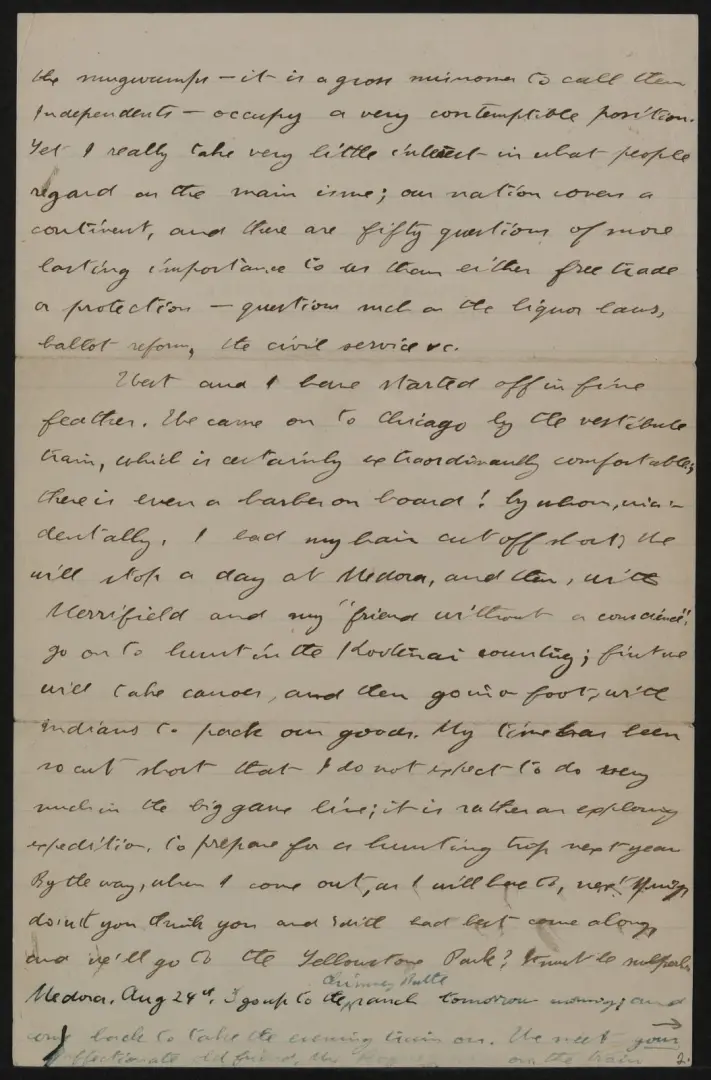 the mugwumps — it is a gross misnomer to call them
Independents — occupy a very contemptible position.
Yet I really take very little interest in what people
regard as the main issue; our nation covers a
continent, and there are fifty questions of more
lasting importance to us than either free trade
or protection — questions such as the liquor laws,
ballot reform, the civil service &c.
West and I have started off in fine
feather. We came on to Chicago by the vestibule
train, which is certainly extraordinarily comfortable;
there is even a barber on board! by whom, inci-
dentally, I had my hair cut off short. We
will stop a day at Medora, and then, with
Merrifield and my "friend without a conscience",
go on to hunt in the Kootenai country; first we
will take canoes, and then go in a foot, with
Indians to pack our goods. My time has been
so cut short that I do not expect to do very
much in the big game line; it is rather an exploring
expedition, to prepare for a hunting trip next year
By the way, when I come out, as I will have to, next Spring
don't you think you and had best come along,
and we'll go to the Yellowstone Park? It must be
Chimney Butte
Medora. Aug 24th. I go up to the ranch tomorrow morning; and
come back to take the evening train on. We meet your
affectionate old friend, the on the train
2.